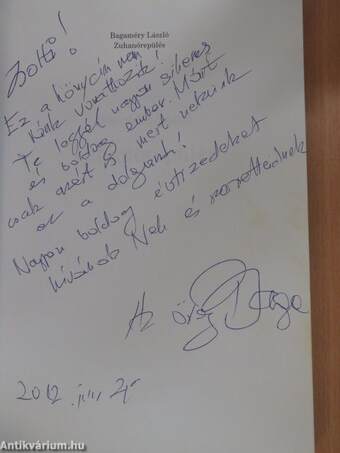 Bagaméry László
Zuhanórepülés
Zolti!
Ez a könyvcím nem
ránk vonatkozik!
Te legyél nagyon sikeres
és boldog ember. Már
csak azért is mert nekünk
ez a dolgunk!
Nagyon boldog évtizedeket
kívánok Neked és szeretteidnek
Az öreg Baga
2012. júli. 2
Antikvárium.hu